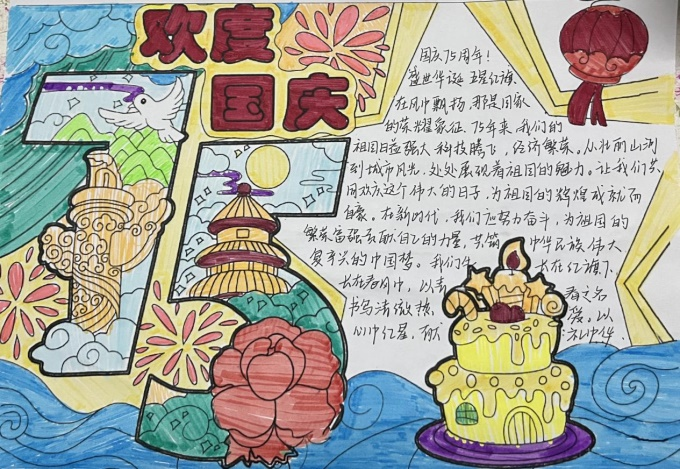 欢度
国庆
75
国庆75周年！
盛世华诞 五星红旗
在风中飘扬，那是国家
的荣耀象征。75年来，我们的
祖国日益强大 科技腾飞，经济繁荣。从壮丽山河
到城市风光，处处展现着祖国的魅力。让我们共
同欢庆这个伟大的日子，为祖国的辉煌成就而
自豪。在新时代，我们应努力奋斗，为祖国的
繁荣富强贡献自己的力量，共筑 中华民族伟大
复兴的中国梦。我们生 长在红旗下
长在春风中，以青 春之名
书写清澈 挚 爱，以
心中红星，献 礼中华。